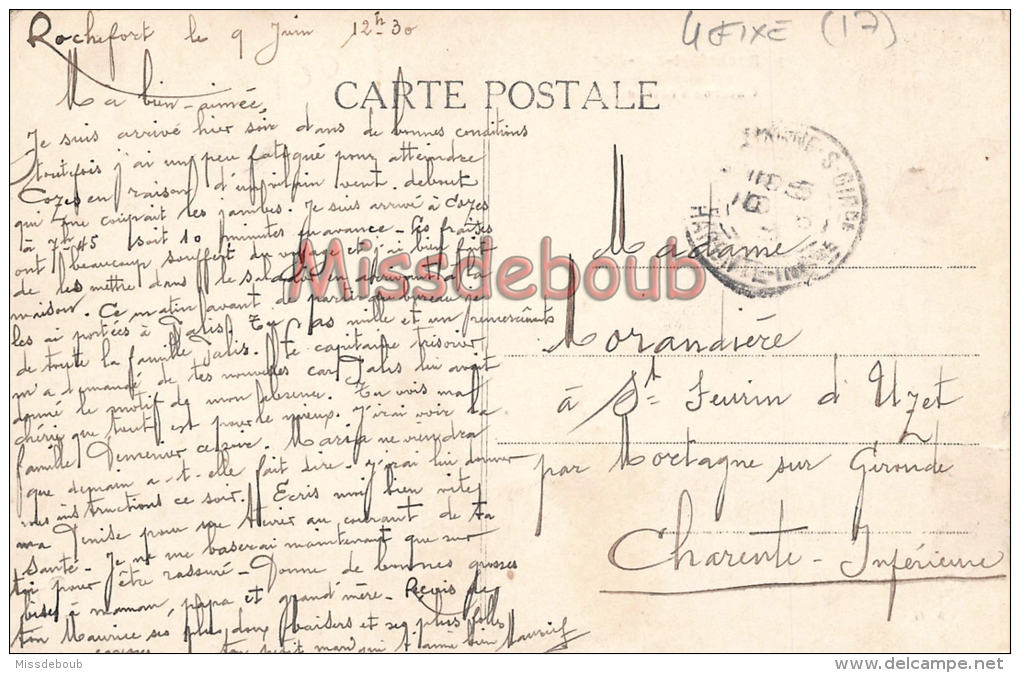 Rochefort le 9 Juin 12h30
(17)
CARTE POSTALE
Ma bien-aimée,
Je suis arrivé hier soir dans de bonnes conditions
toutefois j'ai un peu fatigué pour atteindre
Cozes en raison d'un vilain vent debout
qui me coupait les jambes. Je suis arrivé à Cozes
à 7h45 soit 10 minutes en avance. Les fraises
ont beaucoup souffert du voyage et j'ai bien fait
de les mettre dans le saladier en arrivant à la
maison. Ce matin avant de partir au bureau je
les ai portées à Jalis. Tu as mille et un remerciements
de toute la famille Jalis. Le capitaine trésorier
m'a demandé de tes nouvelles car Jalis lui avait
donné le motif de mon absence. Tu vois ma
chérie que tout est pour le mieux. J'irai voir la
famille Demenier ce soir. Maria ne viendra
que demain a-t-elle fait dire - j'irai lui donner
mes instructions ce soir. Ecris moi bien vite
ma Denise pour me tenir au courant de ta
santé. Je ne me baserai maintenant que sur
toi pour être rassuré - Donne de bonnes grosses
bises à maman, papa et grand'mère. Reçois de
ton Maurice ses plus doux baisers et ses plus folles
caresses ton petit mari qui t'aime bien Maurice
Madame
Morandière
à St Seurin d'Uzet
par Mortagne sur Gironde
Charente-Inférieure
Missdeboub
Missdeboub
www.delcampe.net